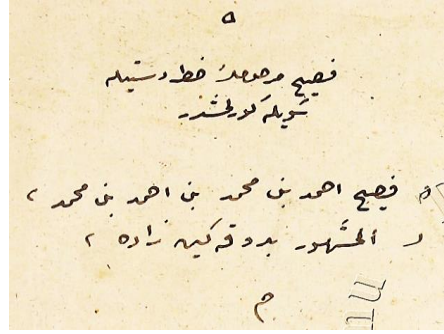 ٥
فصيح مرحومك خط دستيله
شويله كورلمشدر
فصيح احمد بن محمد بن احمد بن محمد ،
المشهور بدوقه كين زاده ،
م